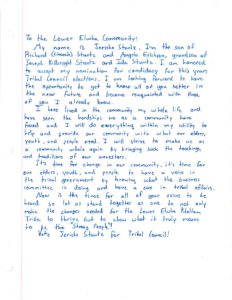 To the Lower Elwha Community!
My name is Jericho Stuntz, I'm the son of
Richard Stuntz and Angela Erickson, grandson of
Joseph Stuntz and Ida Stuntz. I am honored
to accept my nomination for candidacy for this years
Tribal Council elections. I am looking forward to have
the opportunity to get to know all of you better in
the near future and become reaquainted with those
of you I already know.
I have lived in the community my whole life and
have seen the hardships we as a community have
faced and I will do everything within my ability to
help and provide our community with what our elders,
youth, and people need. I will strive to make us as
a community whole again by bringing back the teachings
and traditions of our ancestors.
It's time for change in our community, it's time for
our elders, youth, and people to have a voice in
the tribal government by knowing what the business
committee is doing and have a say in tribal affairs.
Now is the time for all of your voices to be
heard so let us stand together as one to not only
make the changes needed for the Lower Elwha Klallam
Tribe to thrive but to show what it truly means
to be the "Strong People"!
Vote Jericho Stuntz for Tribal Council!